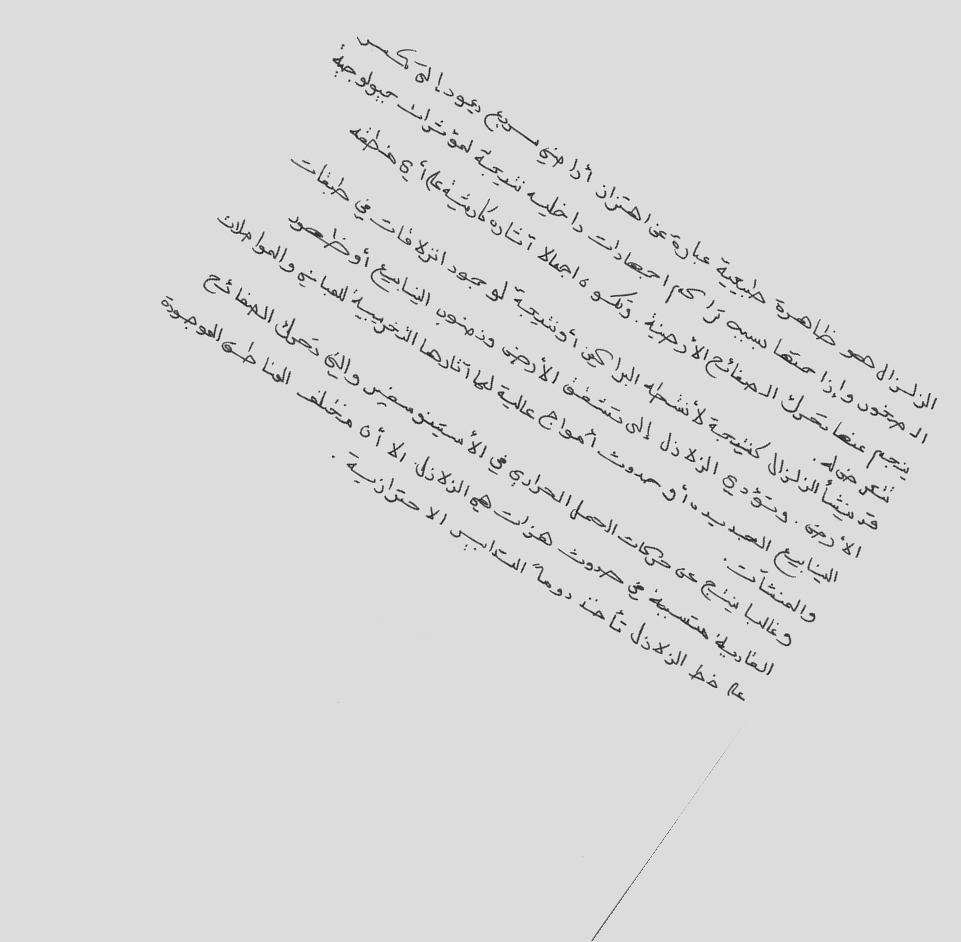 الزلزال هو ظاهرة طبيعية عبارة عن اهتزاز أرضي سريع يعود إلى تكسر
الصخور وإزاحتها بسبب تراكم اجهادات داخلية نتيجة لمؤثرات جيولوجية
ينجم عنها تحرك الصفائح الأرضية. وتكون اجمالا آثاره كارثية على أي منطقه
تتعرض له.
قد ينشأ الزلزال كنتيجة لأنشطه البراكين أو نتيجة لوجود انزلاقات في طبقات
الأرض. وتؤدي الزلازل إلى تشقق الأرض ونضوب الينابيع أو ظهور
الينابيع الجديده، أو حدوث أمواج عالية لها آثارها التخريبية للمباني والمواصلات
والمنشآت.
وغالبا ينتج عن حركات الحمل الحراري في الأستينوسفير والتي تحرك الصفائح
القارية متسببة في حدوث هزات هي الزلازل الا أن مختلف المناطق الموجودة
على خط الزلازل تأخذ دوماً التدابير الاحترازية.